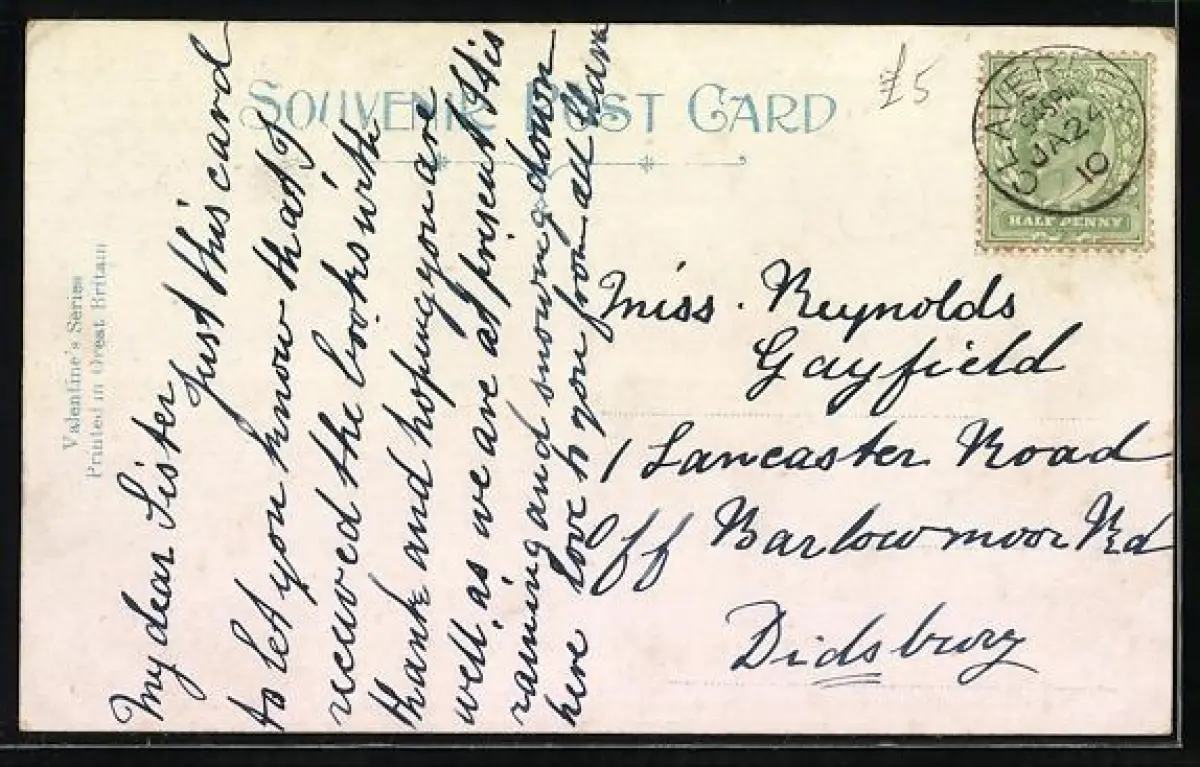 SOUVENIR POST CARD
£5
CLAVERLEY
5 45 PM
JA 24
10
HALF PENNY
Valentine's Series
Printed in Great Britain
My dear Sister
Just this card
to let you know that I
received the books with
thank and hopeing you are
well, as we are at prisent It is
raining and snowing down
here love to you from all
Miss. Reynolds
Gayfield
1 Lancaster Road
Off Barlowmoor Rd
Didsbury